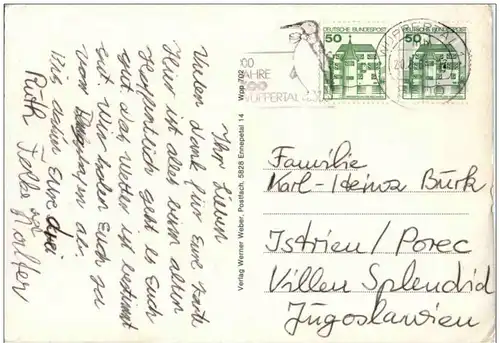 Ihr Lieben
Vielen Dank für Eure Karte
Hier ist alles zum alten
Hoffentlich geht es Euch
gut. Das Wetter ist bestimmt
gut. Wir holen Euch
vom ab.
Bis dahin Eure drei
Ruth
und Walter
Wpp 702
Verlag Werner Weber, Postfach, 5828 Ennepetal 14
100
JAHRE
ZOO
WUPPERTAL
DEUTSCHE BUNDESPOST
50
DEUTSCHE BUNDESPOST
50
WUPPERTAL
Familie
Karl-Heinz Burk
Istrien/Porec
Villen Splendid
Jugoslawien